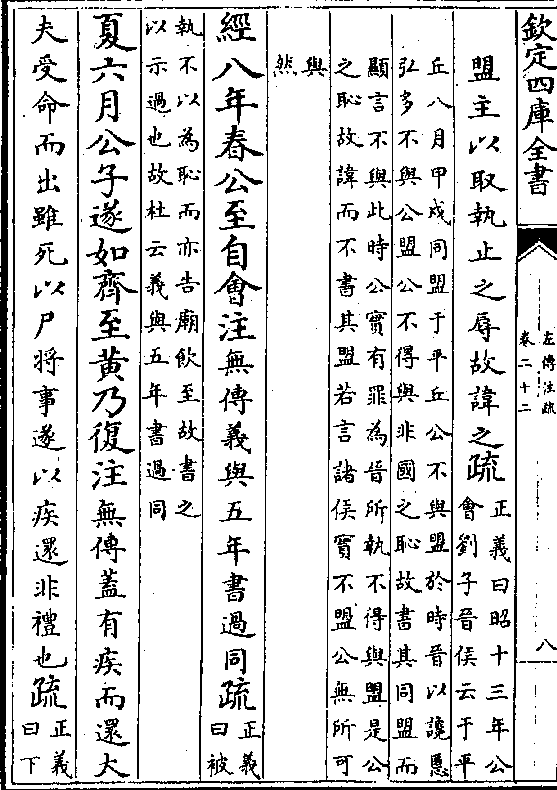 欽定四庫全書
左傳注疏
卷二十二
八
盟主以取執止之辱故諱之疏
正義曰昭十三年公
會劉子晉侯云于平
丘八月甲戌同盟于平丘公不與盟於時晉以讒慝
弘多不與公盟公不得與非國之恥故書其同盟而
顯言不與此時公實有罪為晉所執不得與盟是公
之恥故諱而不書其盟若言諸侯實不盟公無所可
與
然
經八年春公至自會注無傳義與五年書過同疏
正義
曰被
執不以為恥而亦告廟飲至故書之
以示過也故杜云義與五年書過同
夏六月公子遂如齊至黃乃復注無傳蓋有疾而還大
夫受命而出雖死以尸將事遂以疾還非禮也疏
正義
曰下